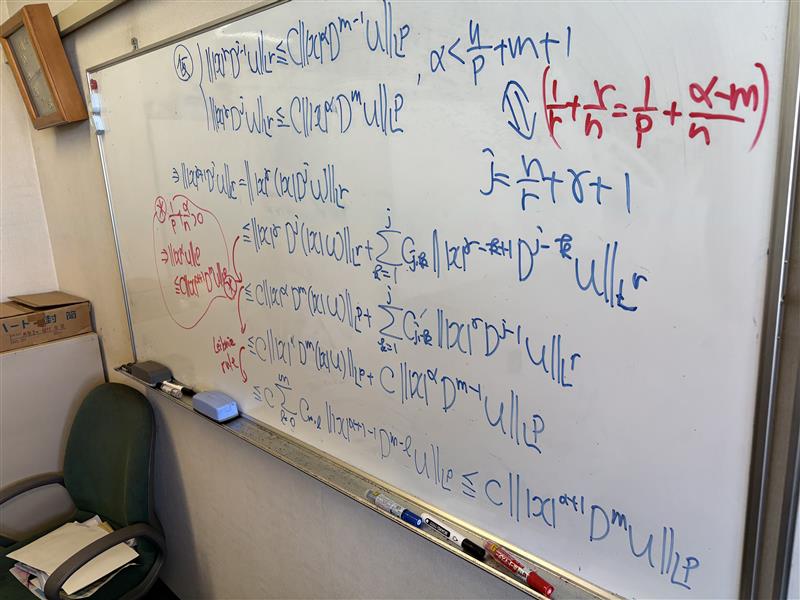 仮 { || |x|^γ D^{j-1} u ||_{L^r} ≦ C || |x|^α D^{m-1} u ||_{L^p}
|| |x|^γ D^j u ||_{L^r} ≦ C || |x|^α D^m u ||_{L^p} , α < n/p + m + 1
⇕ ( 1/r + γ/n = 1/p + (α-m)/n )
j = n/r + γ + 1
⇒ || |x|^{γ+1} D^j u ||_{L^r} = || |x|^γ (|x| D^j u) ||_{L^r}
≦ || |x|^γ D^j (|x| u) ||_{L^r} + Σ_{k=1}^{j} C_{j,k} || |x|^{γ-k+1} D^{j-k} u ||_{L^r}
≦ C || |x|^α D^m (|x| u) ||_{L^p} + Σ_{k=1}^{j} C'_{j,k} || |x|^γ D^{j-1} u ||_{L^r}
≦ C || |x|^α D^m (|x| u) ||_{L^p} + C || |x|^α D^{m-1} u ||_{L^p}
≦ C Σ_{ℓ=0}^{m} C_{m,ℓ} || |x|^{α+1-ℓ} D^{m-ℓ} u ||_{L^p} ≦ C || |x|^{α+1} D^m u ||_{L^p}
※ 1/p + α/n > 0
⇒ || |x|^α u ||_{L^p}
≦ C || |x|^{α+m} D^m u ||_{L^p} ※
Leibniz
rule
ハート 封筒